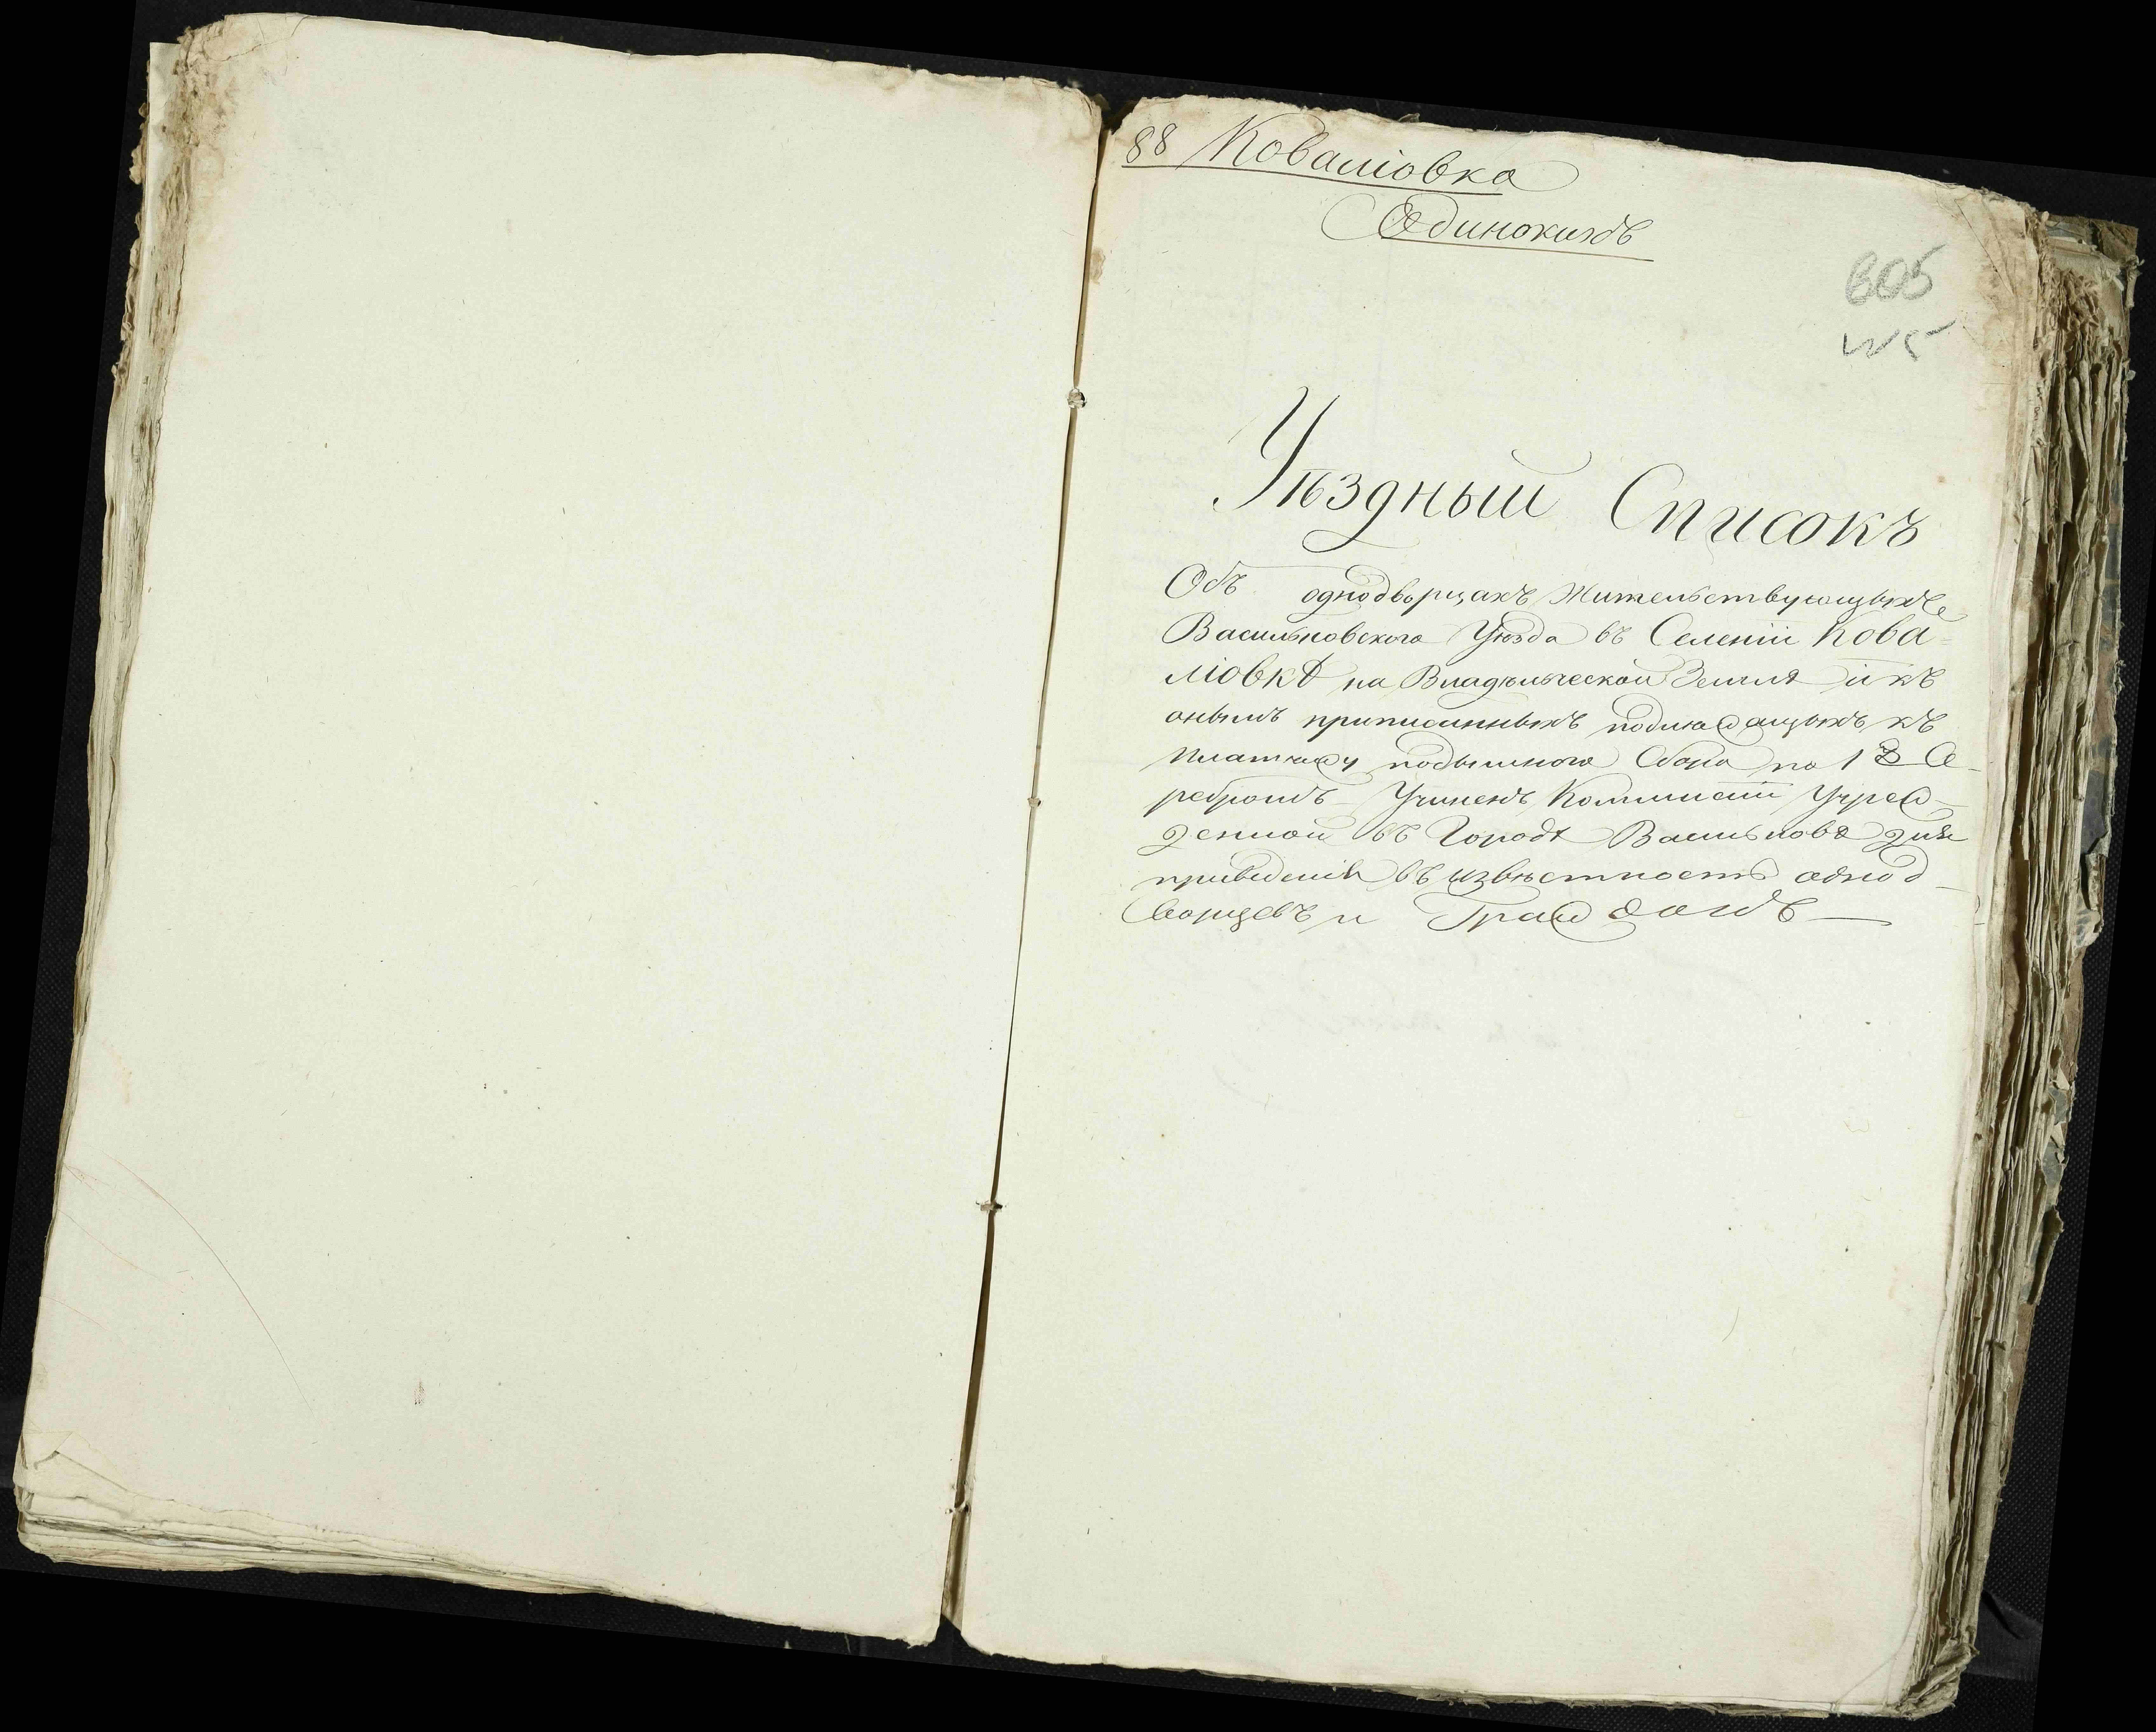 88 Коваліовка
Одинокихъ
605
Уѣздный Списокъ
Объ однодворцахъ Жительствующихъ
Васильковского Уѣзда въ Селеніи Кова-
ліовкѣ на Владѣльческой Землѣ и къ
онымъ приписанныхъ подлежащихъ къ
платежу подымного Сбора по 1 Се-
ребромъ Учиненъ Коммисіи Учреж-
денной въ Городѣ Васильковѣ для
приведенія въ извѣстность однод-
ворцевъ и Гражданъ